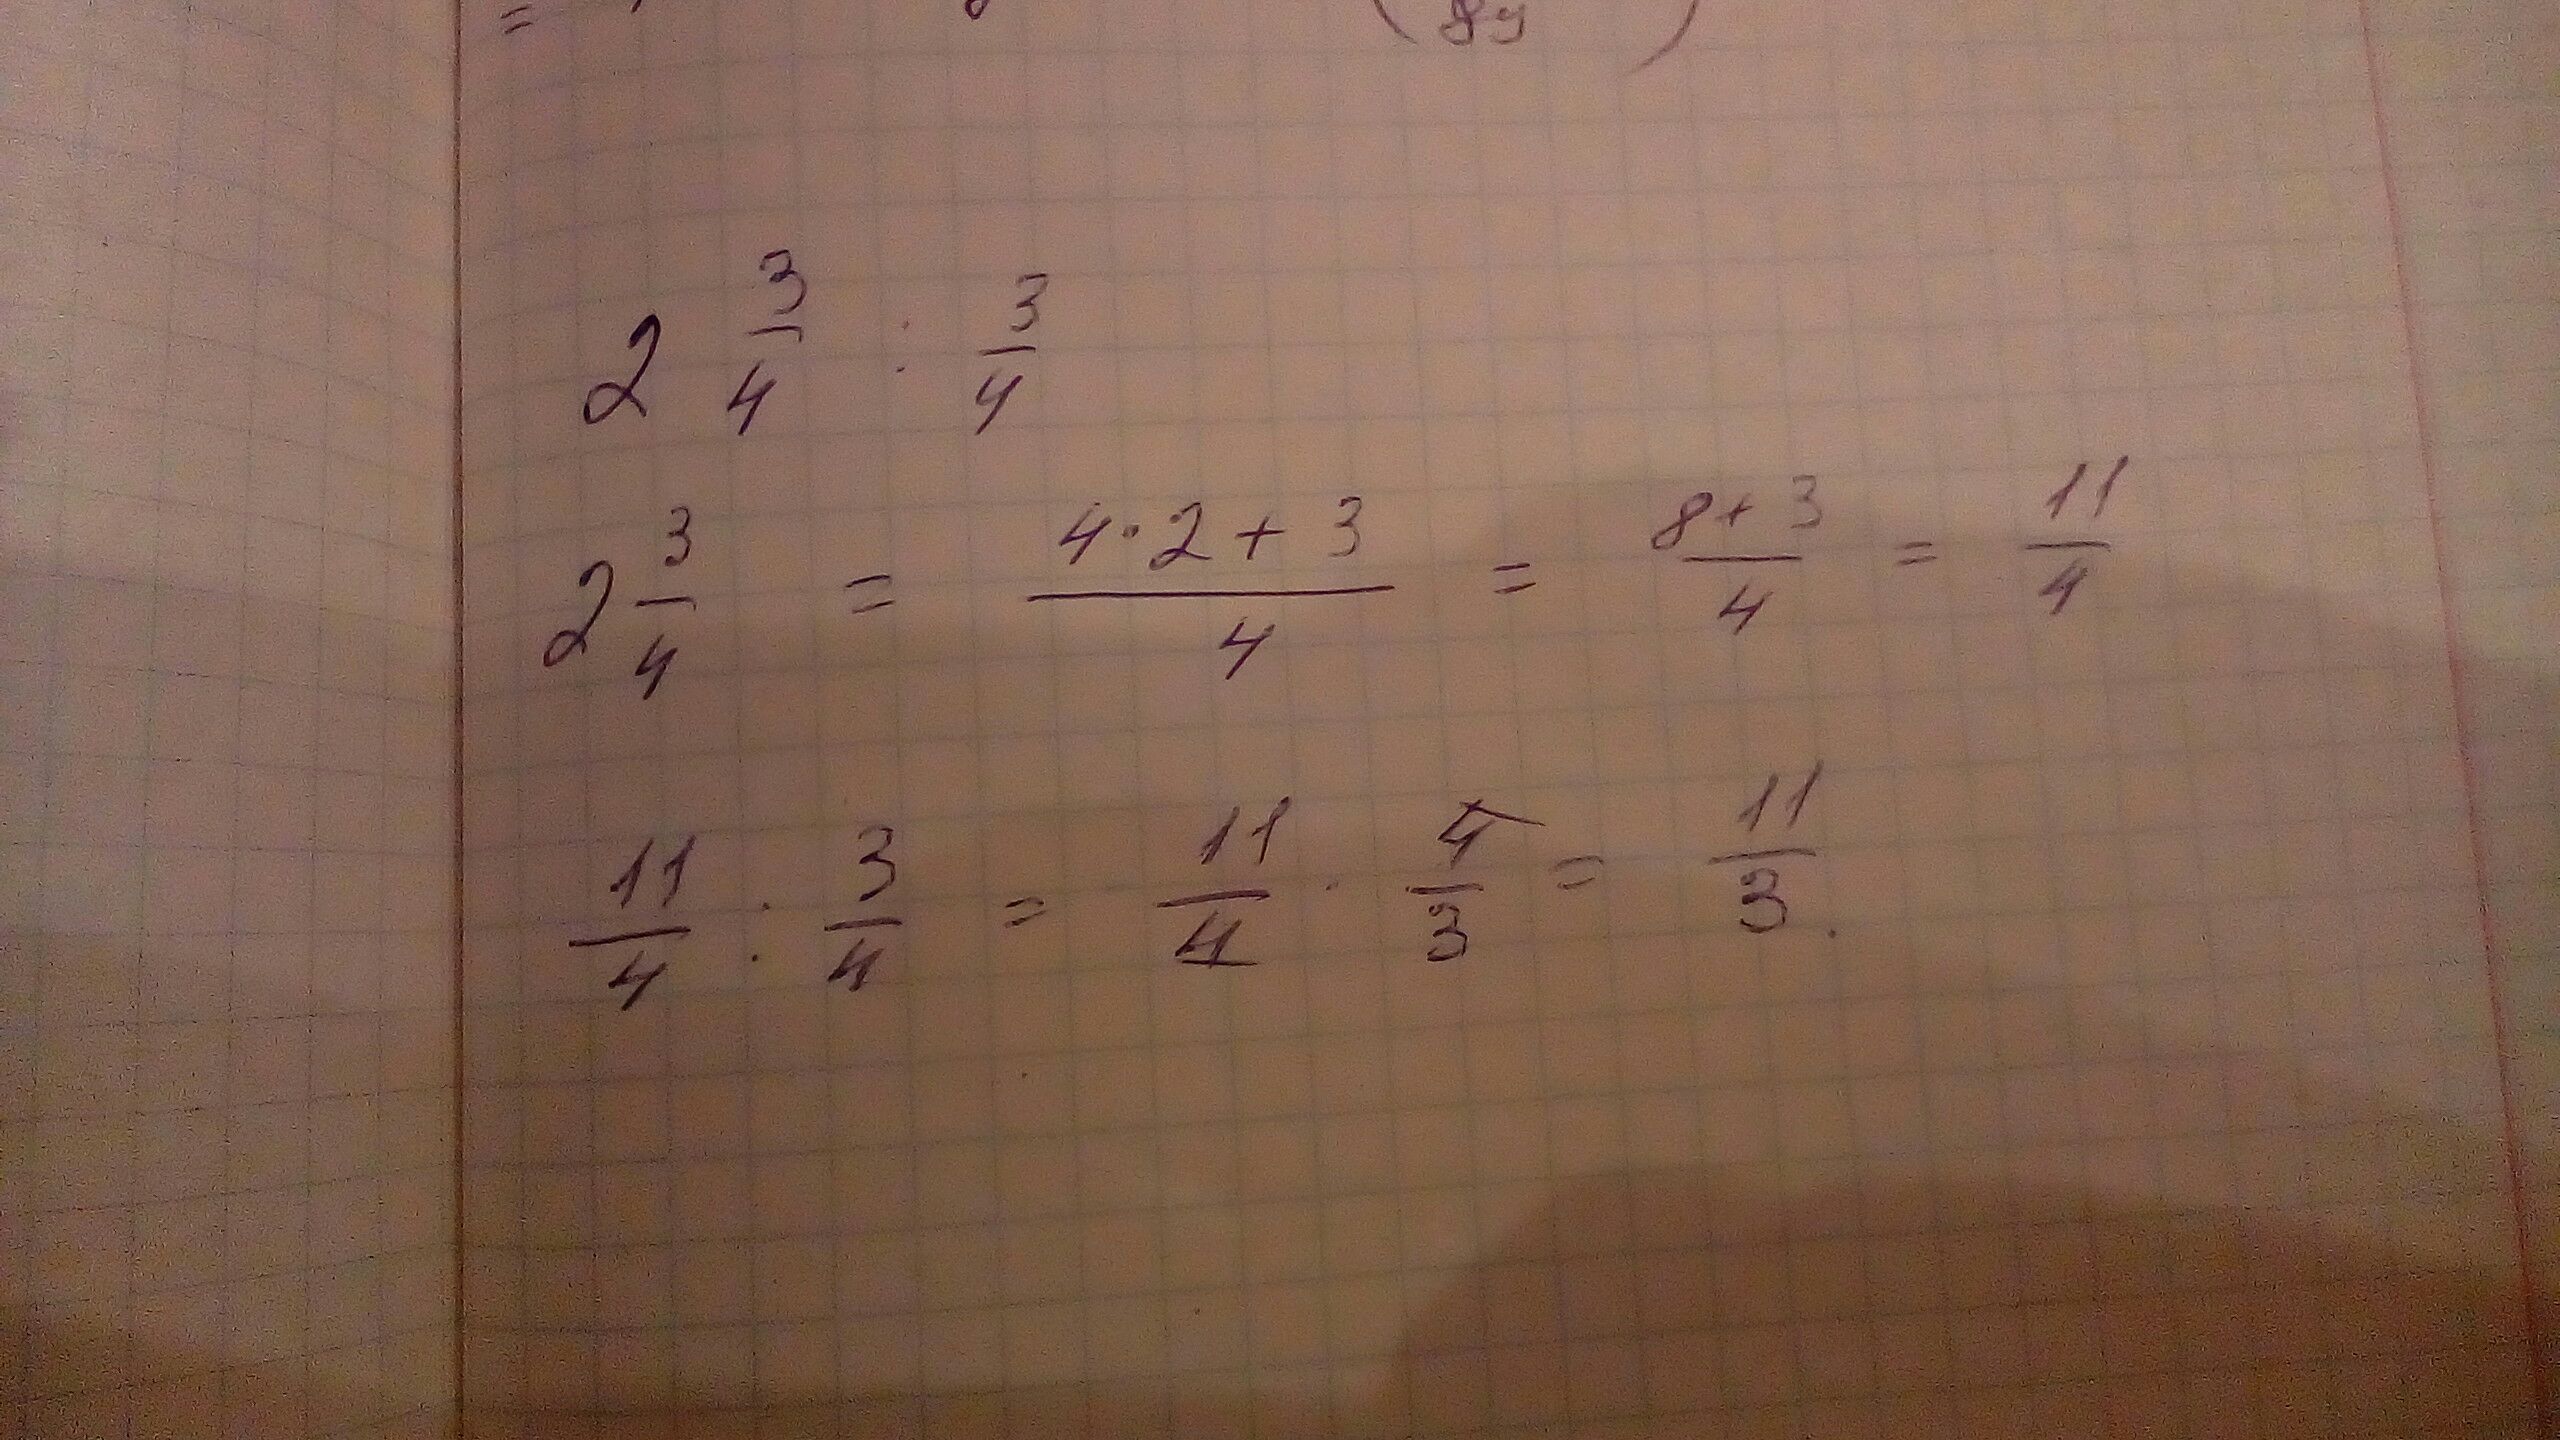 =
( 8y )
2 3/4 : 3/4
2 3/4 = (4·2+3)/4 = (8+3)/4 = 11/4
11/4 : 3/4 = 11/4 · 4/3 = 11/3.